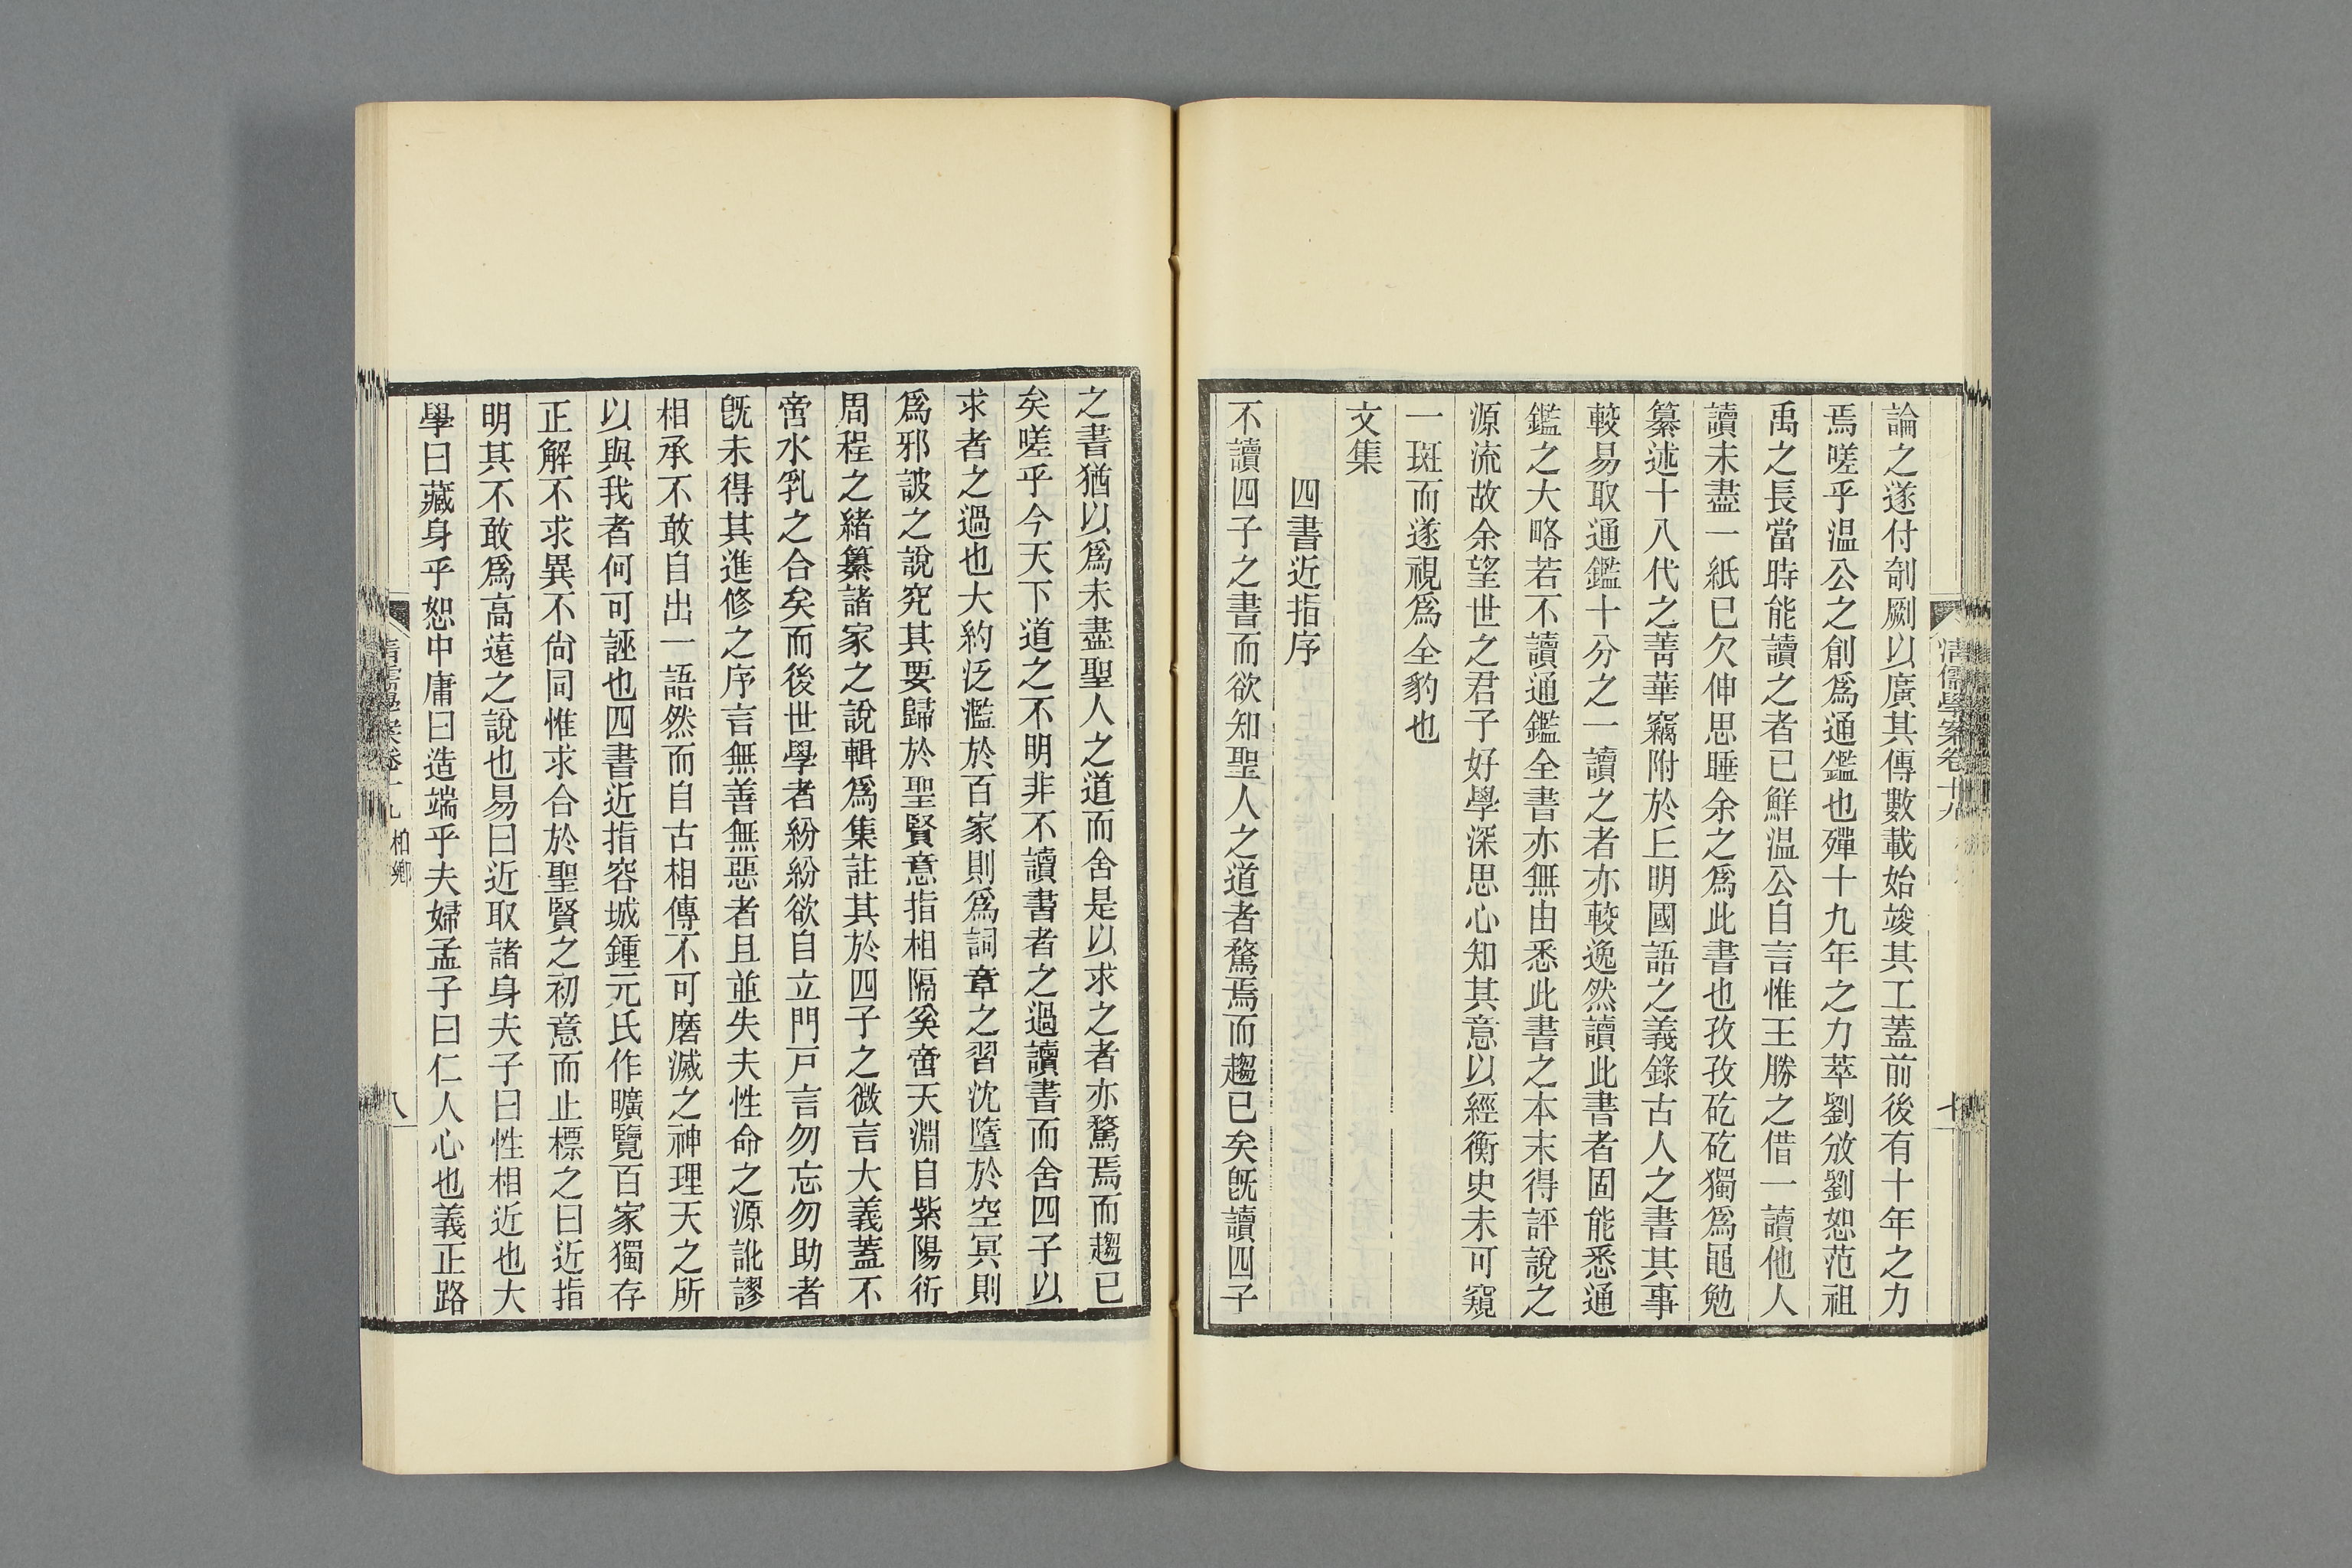 論之遂付剞劂以廣其傳數載始竣其工蓋前後有十年之力
焉嗟乎温公之創爲通鑑也殫十九年之力萃劉攽劉恕范祖
禹之長當時能讀之者已鮮温公自言惟王勝之借一讀他人
讀未盡一紙已欠伸思睡余之爲此書也孜孜矻矻獨爲黽勉
纂述十八代之菁華竊附於丘明國語之義錄古人之書其事
較易取通鑑十分之一讀之者亦較逸然讀此書者固能悉通
鑑之大略若不讀通鑑全書亦無由悉此書之本末得評說之
源流故余望世之君子好學深思心知其意以經衡史未可窺
一斑而遂視爲全豹也
文集
四書近指序
不讀四子之書而欲知聖人之道者騖焉而趨已矣旣讀四子
之書猶以爲未盡聖人之道而舍是以求之者亦騖焉而趨已
矣嗟乎今天下道之不明非不讀書者之過讀書而舍四子以
求者之過也大約泛濫於百家則爲詞章之習沈墮於空冥則
爲邪詖之說究其要歸於聖賢意指相隔奚啻天淵自紫陽衍
周程之緒纂諸家之說輯爲集註其於四子之微言大義蓋不
啻水乳之合矣而後世學者紛紛欲自立門戸言勿忘勿助者
旣未得其進修之序言無善無惡者且並失夫性命之源訛謬
相承不敢自出一語然而自古相傳不可磨滅之神理天之所
以與我者何可誣也四書近指容城鍾元氏作曠覽百家獨存
正解不求異不尙同惟求合於聖賢之初意而止標之曰近指
明其不敢爲高遠之說也易曰近取諸身夫子曰性相近也大
學曰藏身乎恕中庸曰造端乎夫婦孟子曰仁人心也義正路
清儒學案卷十九
清儒學案卷十九 柏鄉
八